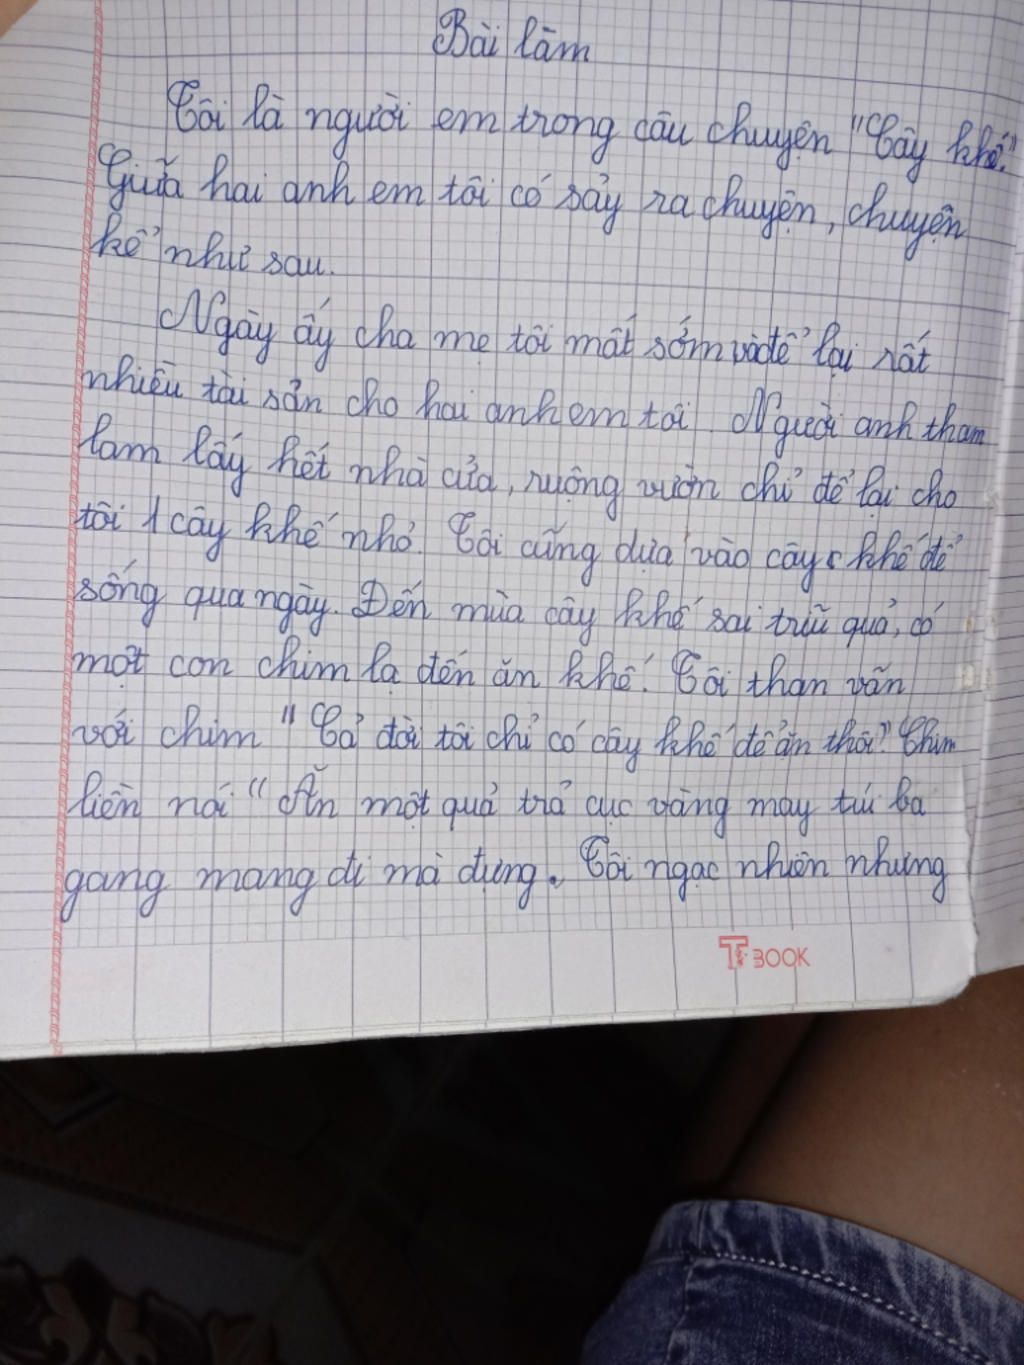 Bài làm
Tôi là người em trong câu chuyện "Cây khế."
Giữa hai anh em tôi có sảy ra chuyện, chuyện
kể như sau.
Ngày ấy cha mẹ tôi mất sớm và để lại rất
nhiều tài sản cho hai anh em tôi. Người anh tham
lam lấy hết nhà cửa, ruộng vườn chỉ để lại cho
tôi 1 cây khế nhỏ. Tôi cũng dựa vào cây khế để
sống qua ngày. Đến mùa cây khế sai trĩu quả, có
một con chim lạ đến ăn khế. Tôi than vãn
với chim "Cả đời tôi chỉ có cây khế để ăn thôi". Chim
liền nói "Ăn một quả trả cục vàng may túi ba
gang mang đi mà đựng. Tôi ngạc nhiên nhưng
TBOOK